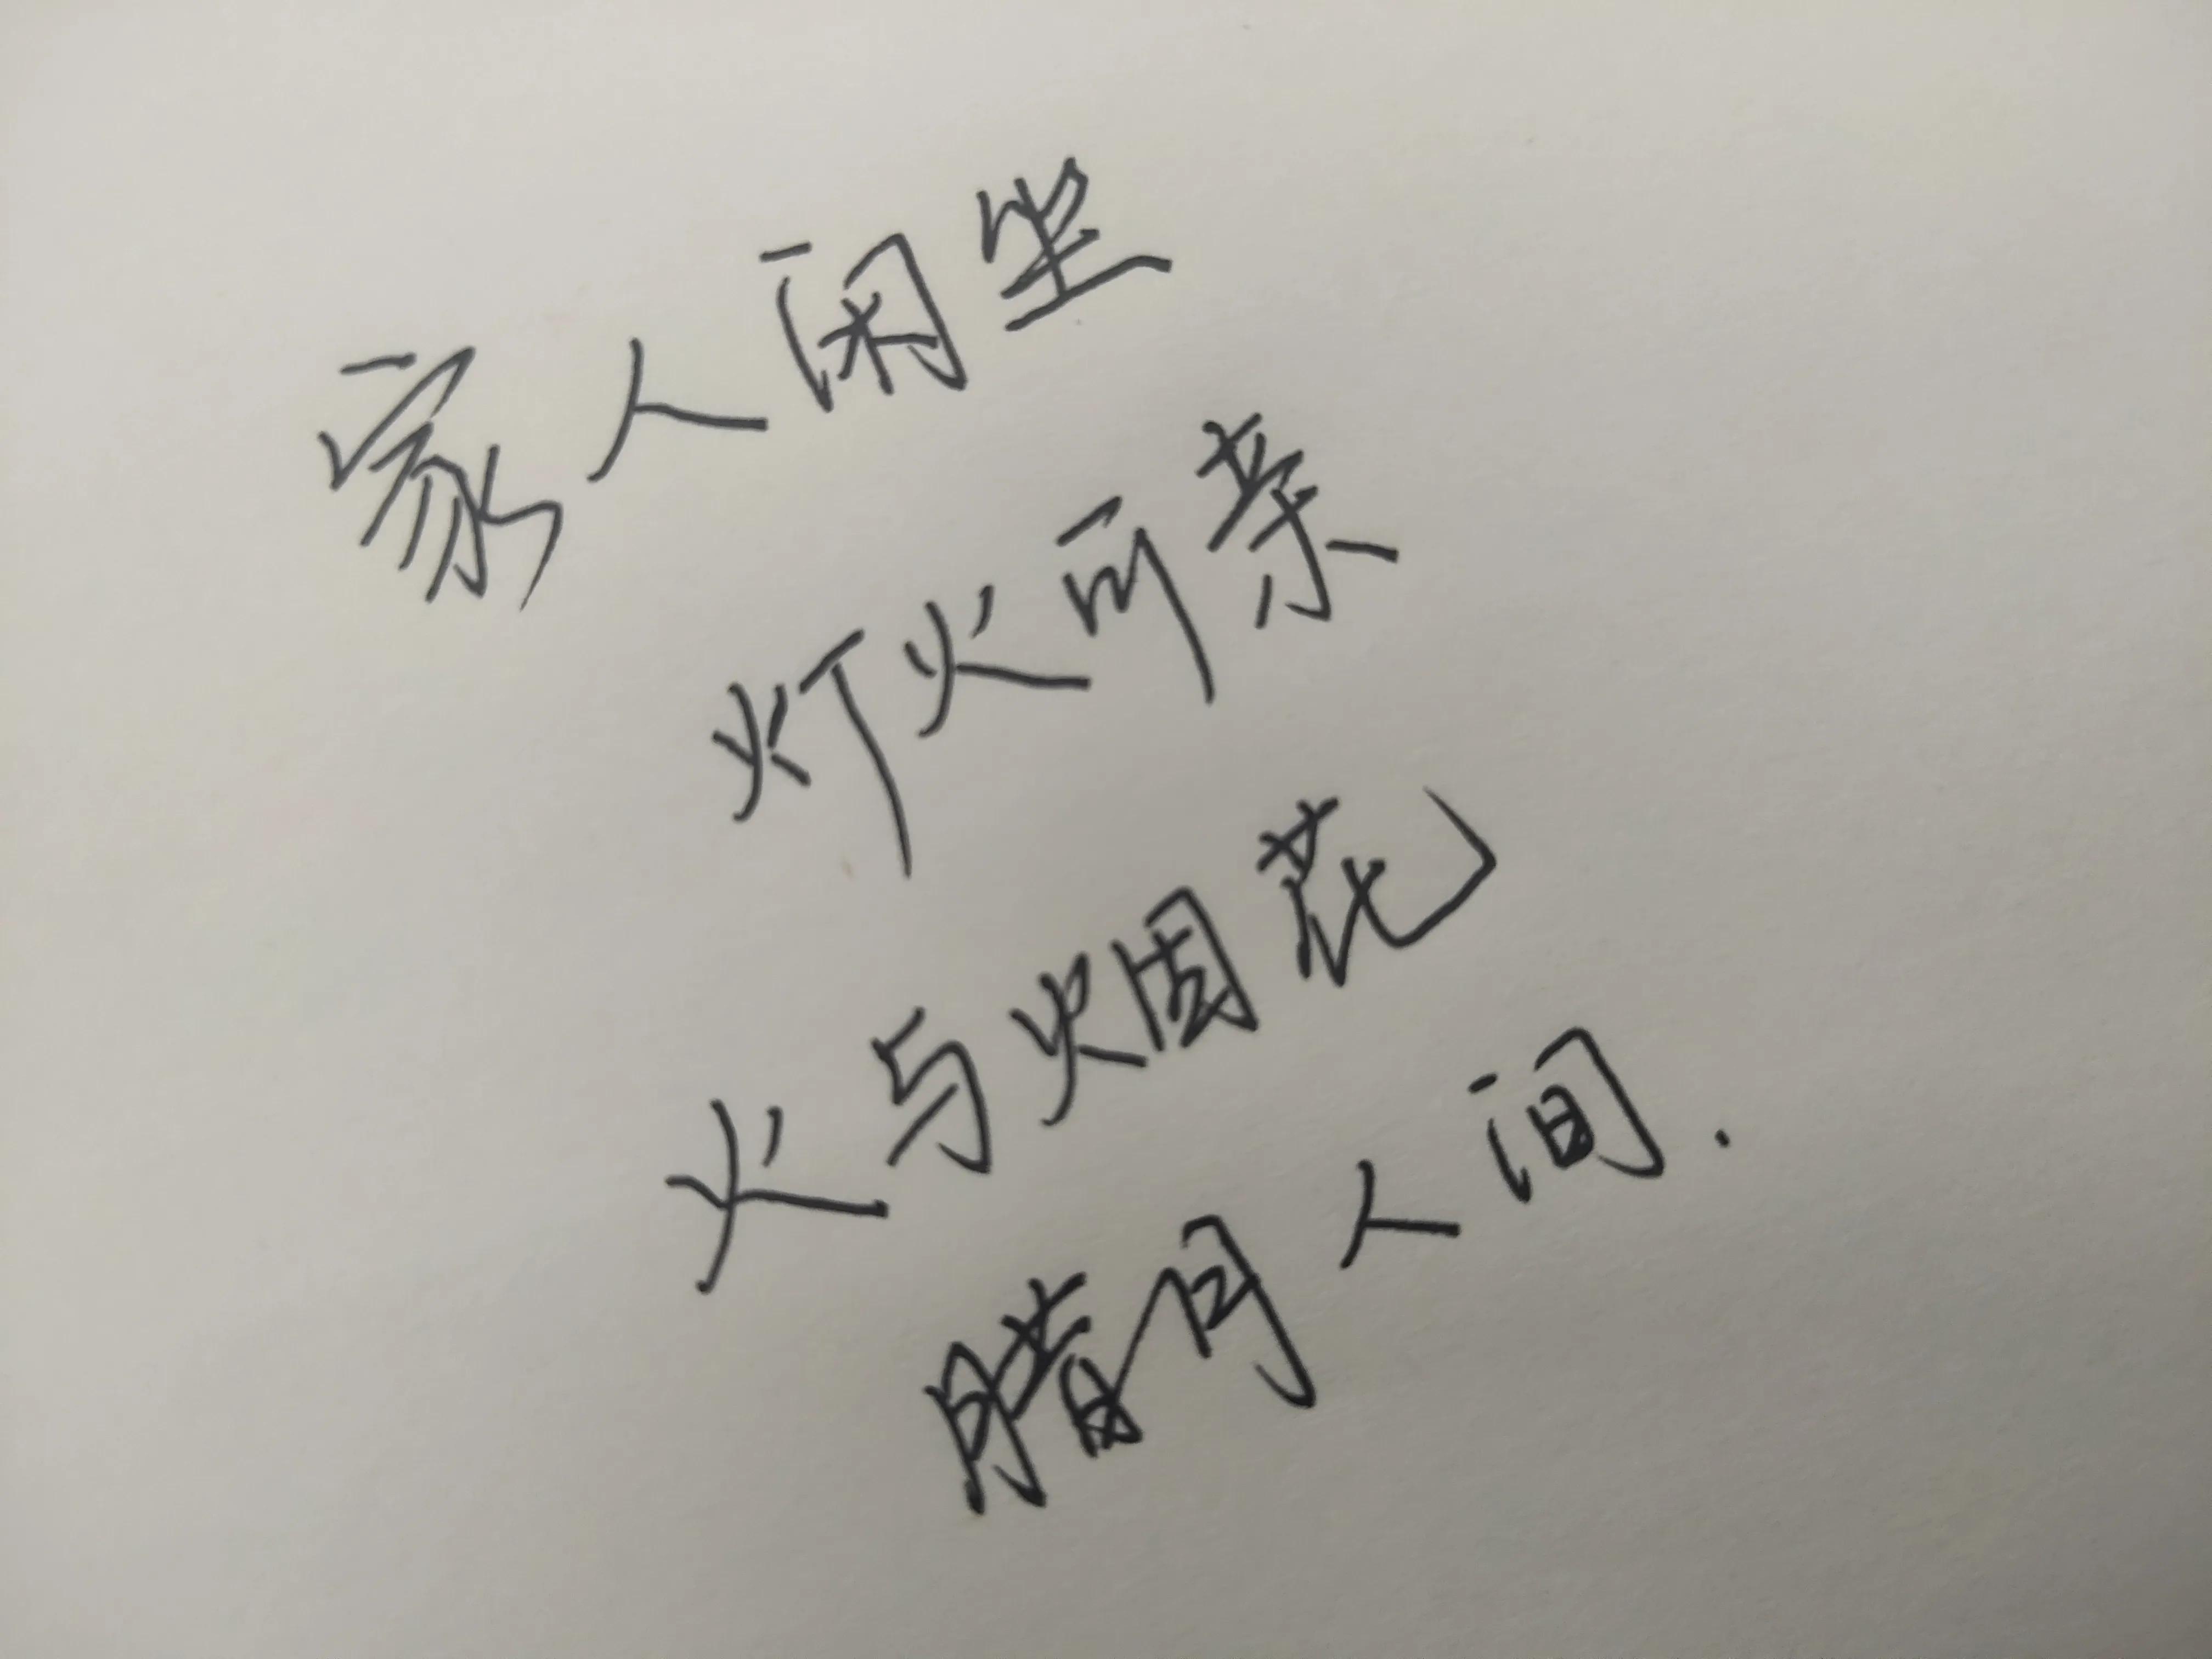 家人闲坐
灯火可亲
火与烟花
腊月人间.